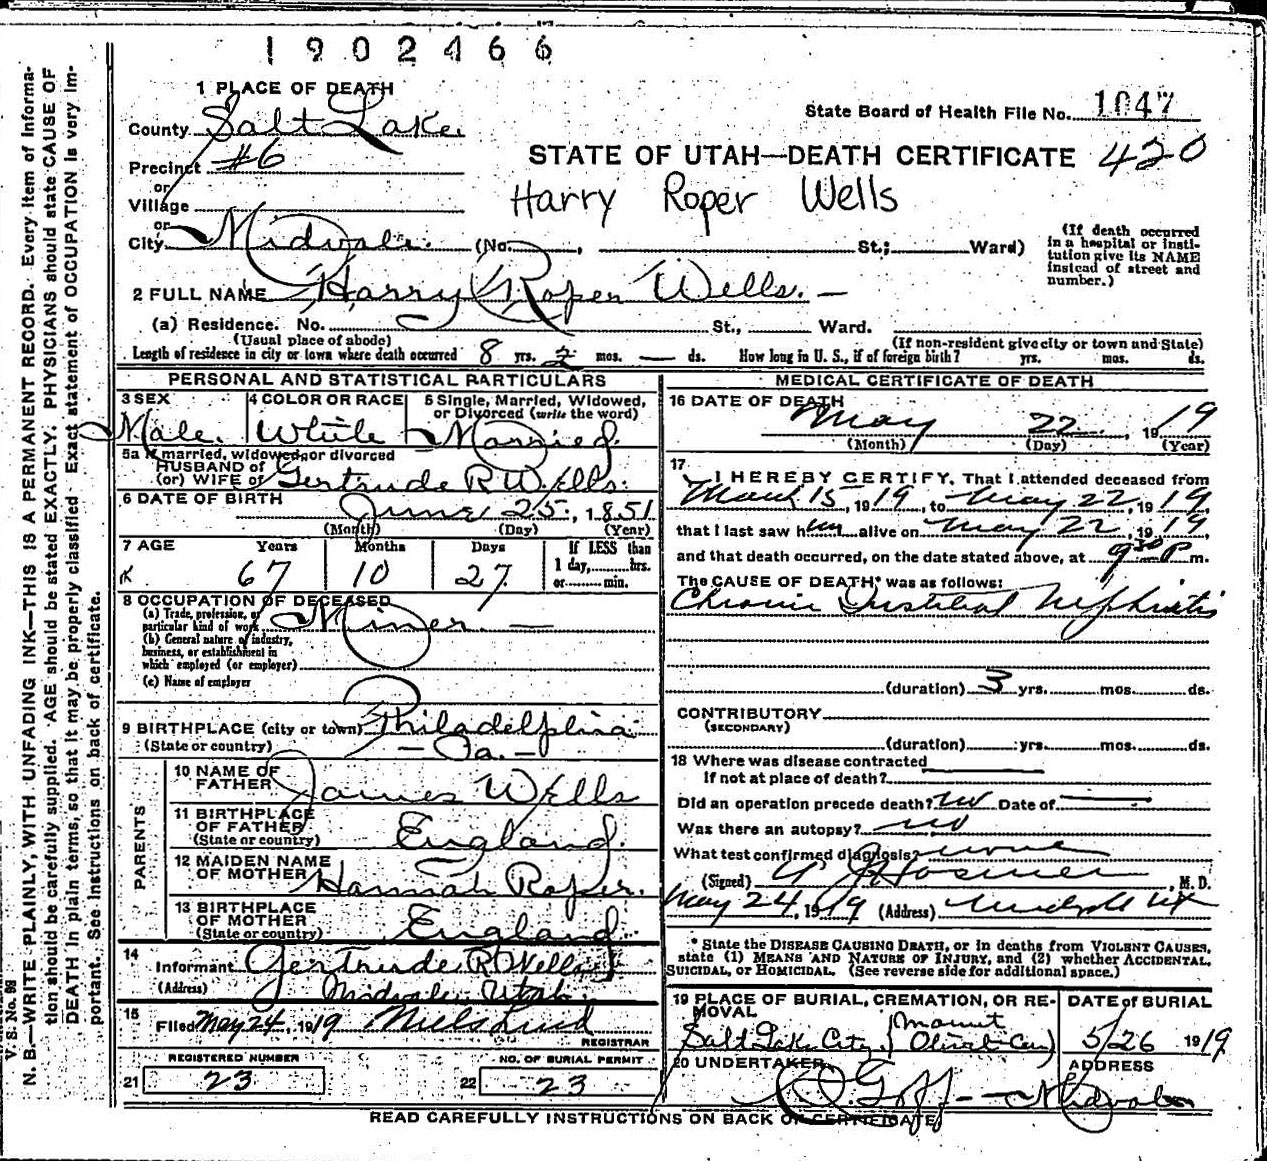 1902466
1 PLACE OF DEATH
State Board of Health File No. 1047
County Salt Lake
Precinct #6
STATE OF UTAH—DEATH CERTIFICATE 420
or
Village
Harry Roper Wells
or
City Midvale (No. , St.; Ward)
(If death occurred in a hospital or institution give its NAME instead of street and number.)
2 FULL NAME Harry Roper Wells.
(a) Residence. No. St., Ward.
(Usual place of abode) (If non-resident give city or town and State)
Length of residence in city or town where death occurred 8 yrs. 2 mos. — ds. How long in U. S., if of foreign birth? yrs. mos. ds.
PERSONAL AND STATISTICAL PARTICULARS
3 SEX 4 COLOR OR RACE 5 Single, Married, Widowed, or Divorced (write the word)
Male. White Married.
5a If married, widowed, or divorced
HUSBAND of
(or) WIFE of Gertrude R Wells.
6 DATE OF BIRTH June 25, 1851
(Month) (Day) (Year)
7 AGE Years Months Days If LESS than
1 day, hrs.
or min.
67 10 27
8 OCCUPATION OF DECEASED
(a) Trade, profession, or
particular kind of work Miner. —
(b) General nature of industry,
business, or establishment in
which employed (or employer)
(c) Name of employer
9 BIRTHPLACE (city or town) Philadelphia
(State or country) — Pa. —
PARENTS
10 NAME OF FATHER James Wells
11 BIRTHPLACE OF FATHER
(State or country) England.
12 MAIDEN NAME OF MOTHER Hannah Roper.
13 BIRTHPLACE OF MOTHER
(State or country) England.
14 Informant Gertrude R Wells
(Address) Midvale, Utah.
15 Filed May 24, 1919 Niels Lind
REGISTRAR
REGISTERED NUMBER NO. OF BURIAL PERMIT
21 23 22 23
MEDICAL CERTIFICATE OF DEATH
16 DATE OF DEATH
May 22, 1919
(Month) (Day) (Year)
17 I HEREBY CERTIFY, That I attended deceased from
March 15, 1919, to May 22, 1919,
that I last saw him alive on May 22, 1919,
and that death occurred, on the date stated above, at 9 30 P m.
The CAUSE OF DEATH* was as follows:
Chronic Interstitial Nephritis
(duration) 3 yrs. mos. ds.
CONTRIBUTORY
(SECONDARY)
(duration) yrs. mos. ds.
18 Where was disease contracted
if not at place of death?
Did an operation precede death? no Date of —
Was there an autopsy? no
What test confirmed diagnosis? none
(Signed) Hosmer, M. D.
May 24, 1919 (Address) Midvale Ut
* State the DISEASE CAUSING DEATH, or in deaths from VIOLENT CAUSES, state (1) MEANS AND NATURE OF INJURY, and (2) whether ACCIDENTAL, SUICIDAL, or HOMICIDAL. (See reverse side for additional space.)
19 PLACE OF BURIAL, CREMATION, OR REMOVAL DATE of BURIAL
Salt Lake City (Mount Olivet Cem) 5/26 1919
20 UNDERTAKER ADDRESS
Goff — Midvale
READ CAREFULLY INSTRUCTIONS ON BACK OF CERTIFICATE
V. S. No. 99
N. B.—WRITE PLAINLY, WITH UNFADING INK—THIS IS A PERMANENT RECORD. Every item of information should be carefully supplied. AGE should be stated EXACTLY. PHYSICIANS should state CAUSE OF DEATH in plain terms, so that it may be properly classified. Exact statement of OCCUPATION is very important. See instructions on back of certificate.